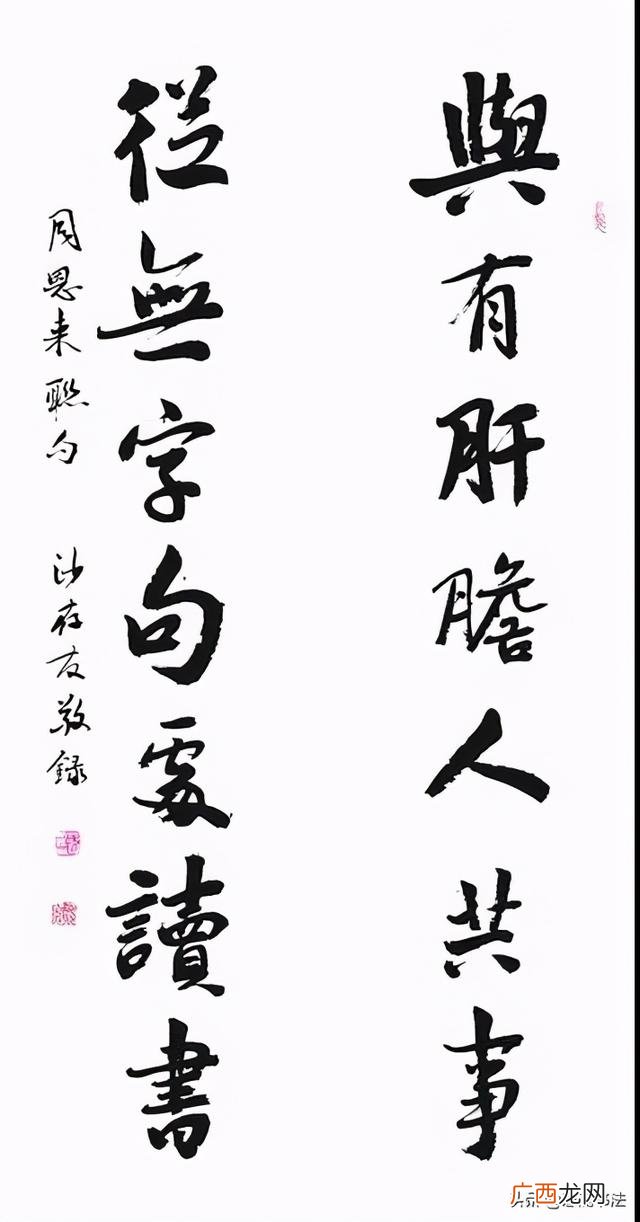 與有肝膽人共事
從無字句處讀書
周恩来聯句
沙存友敬録
广西龙网